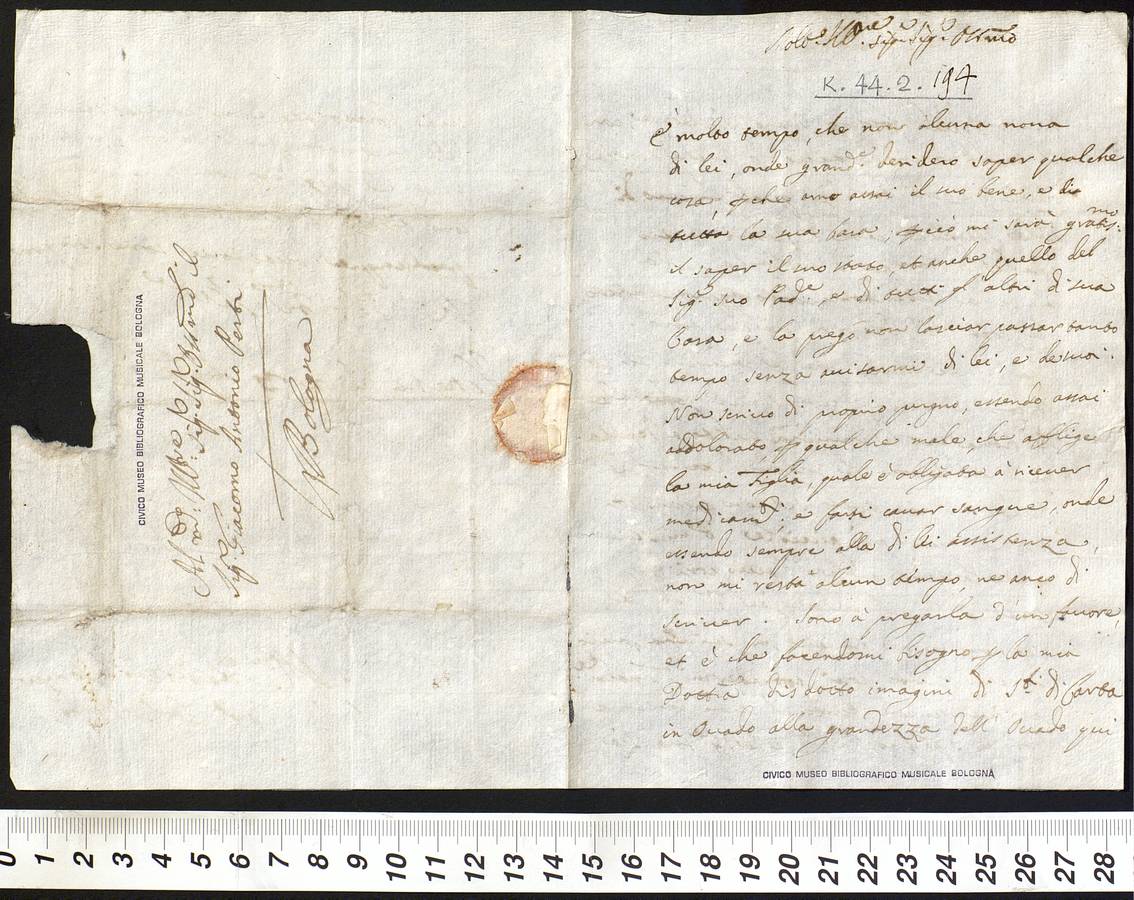 Al
Sig.r Giacomo Antonio Perti
Bologna
CIVICO MUSEO BIBLIOGRAFICO MUSICALE BOLOGNA
K. 44. 2. 194
È molto tempo, che non ò alcuna nova
di lei, onde grand.e desidero saper qualche
cosa, perche amo assai il suo bene, e di
tutta la sua Casa, perciò mi sarà gratis.mo
il saper il suo stato, et anche quello del
Sig.r suo Pad.e, e di tutti gl'altri di sua
Casa, e la prego non lasciar passar tanto
tempo senza avisarmi di lei, e de suoi.
Non scrivo di proprio pugno, essendo assai
addolorato per qualche male, che afflige
la mia Figlia, quale è obligata à ricever
medicam.ti, e farsi cavar sangue, onde
essendo sempre alla di lei assistenza,
non mi resta alcun tempo, ne anco di
scriver. Sono à pregarla d'un favore,
et è che facendomi bisogno per la mia
disdotto imagini di S.ti di Carta
in Ovado alla grandezza dell' Ovado qui
CIVICO MUSEO BIBLIOGRAFICO MUSICALE BOLOGNA
0 1 2 3 4 5 6 7 8 9 10 11 12 13 14 15 16 17 18 19 20 21 22 23 24 25 26 27 28